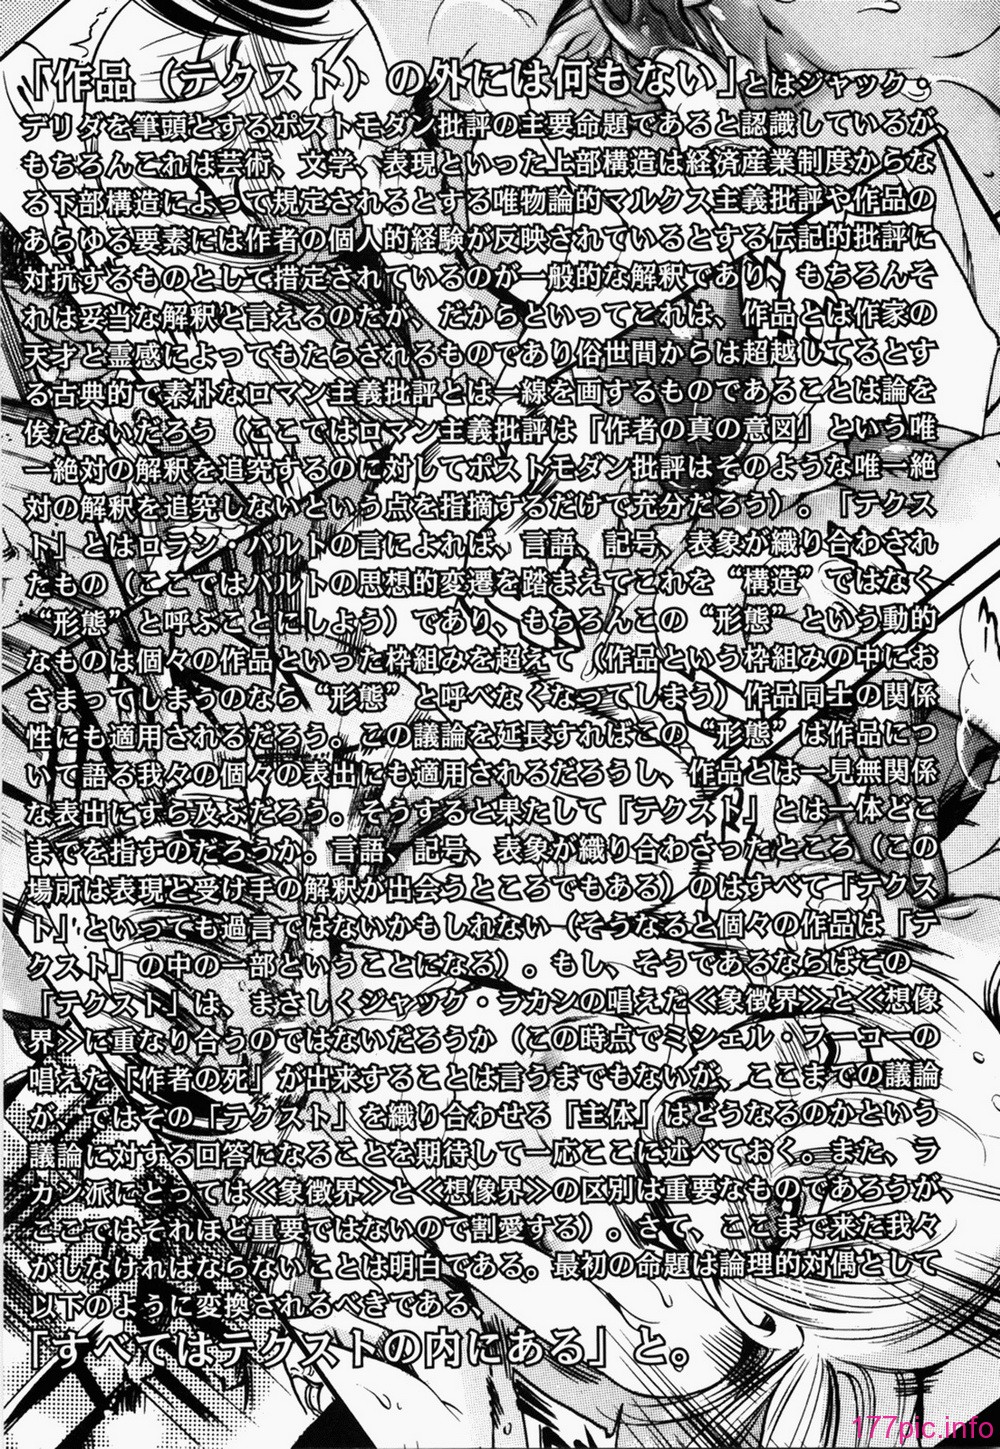 「作品（テクスト）の外には何もない」とはジャック・
デリダを筆頭とするポストモダン批評の主要命題であると認識しているが、
もちろんこれは芸術、文学、表現といった上部構造は経済産業制度からな
る下部構造によって規定されるとする唯物論的マルクス主義批評や作品の
あらゆる要素には作者の個人的経験が反映されているとする伝記的批評に
対抗するものとして措定されているのが一般的な解釈であり、もちろんそ
れは妥当な解釈と言えるのだが、だからといってこれは、作品とは作家の
天才と霊感によってもたらされるものであり俗世間からは超越してるとす
る古典的で素朴なロマン主義批評とは一線を画するものであることは論を
俟たないだろう（ここではロマン主義批評は「作者の真の意図」という唯
一絶対の解釈を追究するのに対してポストモダン批評はそのような唯一絶
対の解釈を追究しないという点を指摘するだけで充分だろう）。「テクス
ト」とはロラン・バルトの言によれば、言語、記号、表象が織り合わされ
たもの（ここではバルトの思想的変遷を踏まえてこれを“構造”ではなく
“形態”と呼ぶことにしよう）であり、もちろんこの“形態”という動的
なものは個々の作品といった枠組みを超えて（作品という枠組みの中にお
さまってしまうのなら“形態”と呼べなくなってしまう）作品同士の関係
性にも適用されるだろう。この議論を延長すればこの“形態”は作品につ
いて語る我々の個々の表出にも適用されるだろうし、作品とは一見無関係
な表出にすら及ぶだろう。そうすると果たして「テクスト」とは一体どこ
までを指すのだろうか。言語、記号、表象が織り合わさったところ（この
場所は表現と受け手の解釈が出会うところでもある）のはすべて「テクス
ト」といっても過言ではないかもしれない（そうなると個々の作品は「テ
クスト」の中の一部ということになる）。もし、そうであるならばこの
「テクスト」は、まさしくジャック・ラカンの唱えた≪象徴界≫と≪想像
界≫に重なり合うのではないだろうか（この時点でミシェル・フーコーの
唱えた「作者の死」が出来することは言うまでもないが、ここまでの議論
が、ではその「テクスト」を織り合わせる「主体」はどうなるのかという
議論に対する回答になることを期待して一応ここに述べておく。また、ラ
カン派にとっては≪象徴界≫と≪想像界≫の区別は重要なものであろうが、
ここではそれほど重要ではないので割愛する）。さて、ここまで来た我々
がしなければならないことは明白である。最初の命題は論理的対偶として
以下のように変換されるべきである、
「すべてはテクストの内にある」と。
177pic.info